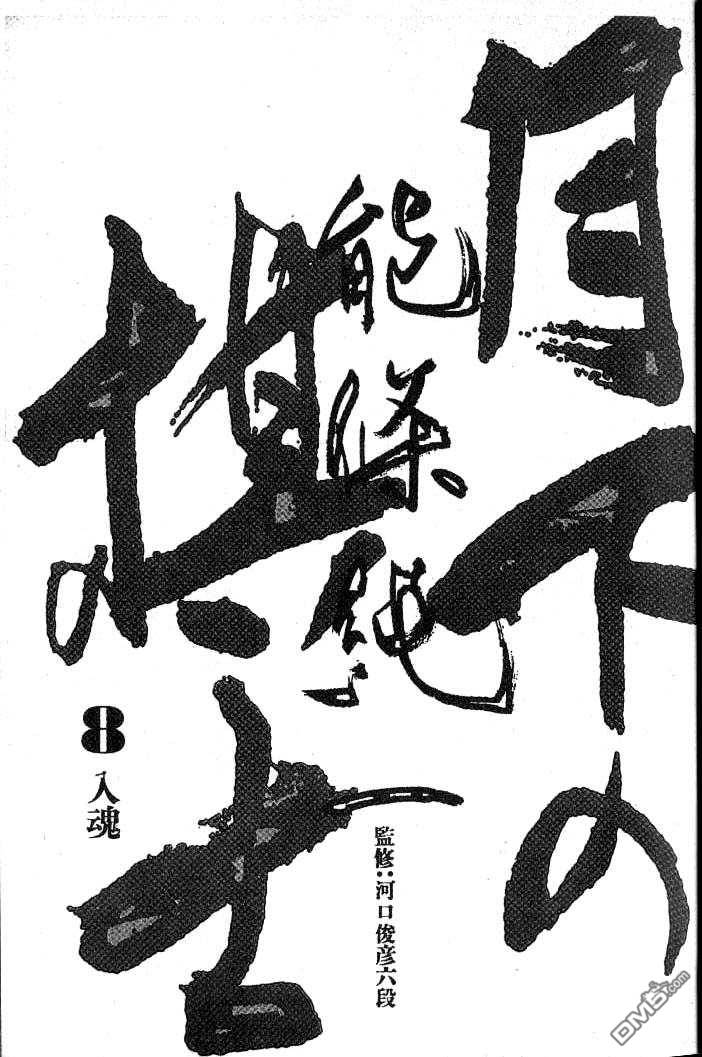 月下の
棋士
能條純一
8
入魂
監修:河口俊彦六段
DM5.com